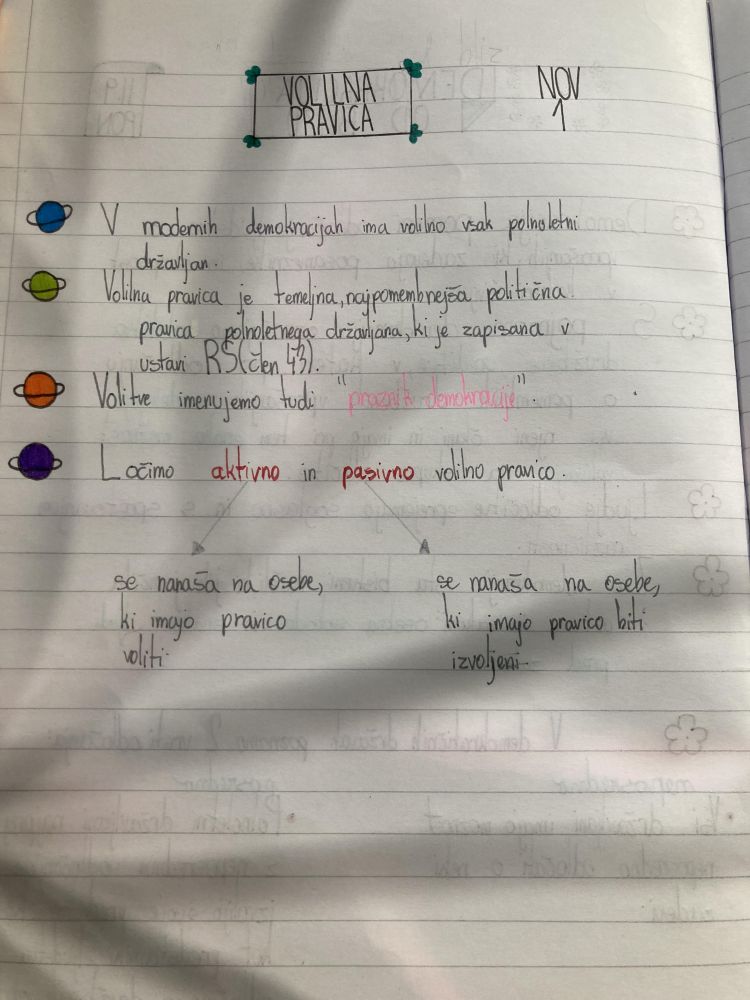 VOLILNA
PRAVICA
NOV
1
V modernih demokracijah ima volilno vsak polnoletni
državljan.
Volilna pravica je temeljna, najpomembnejša politična
pravica polnoletnega državljana, ki je zapisana v
ustavi RS (člen 43).
Volitve imenujemo tudi "praznik demokracije".
Ločimo aktivno in pasivno volilno pravico.
se nanaša na osebe,
ki imajo pravico
voliti.
se nanaša na osebe,
ki imajo pravico biti
izvoljeni.